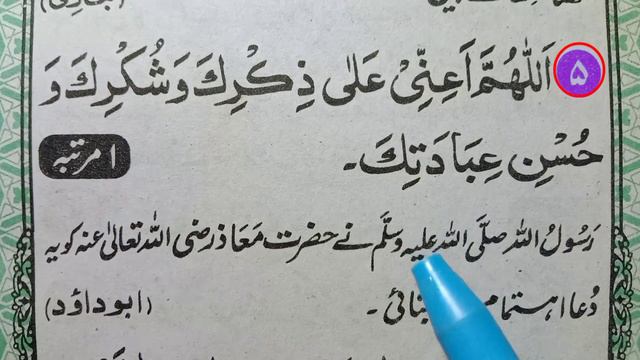 (بخاری)
۵ اَللّٰهُمَّ اَعِنِّیْ عَلٰی ذِكْرِكَ وَشُكْرِكَ وَ
حُسْنِ عِبَادَتِكَ۔ ۱ مرتبہ
رَسُولُ اللہ صلَّی اللہ علیہ وسلَّم نے حضرت مَعَاذ رضی اللہ تعالیٰ عنہ کو یہ
دُعا اہتمام بتائی ۔ (ابوداؤد)